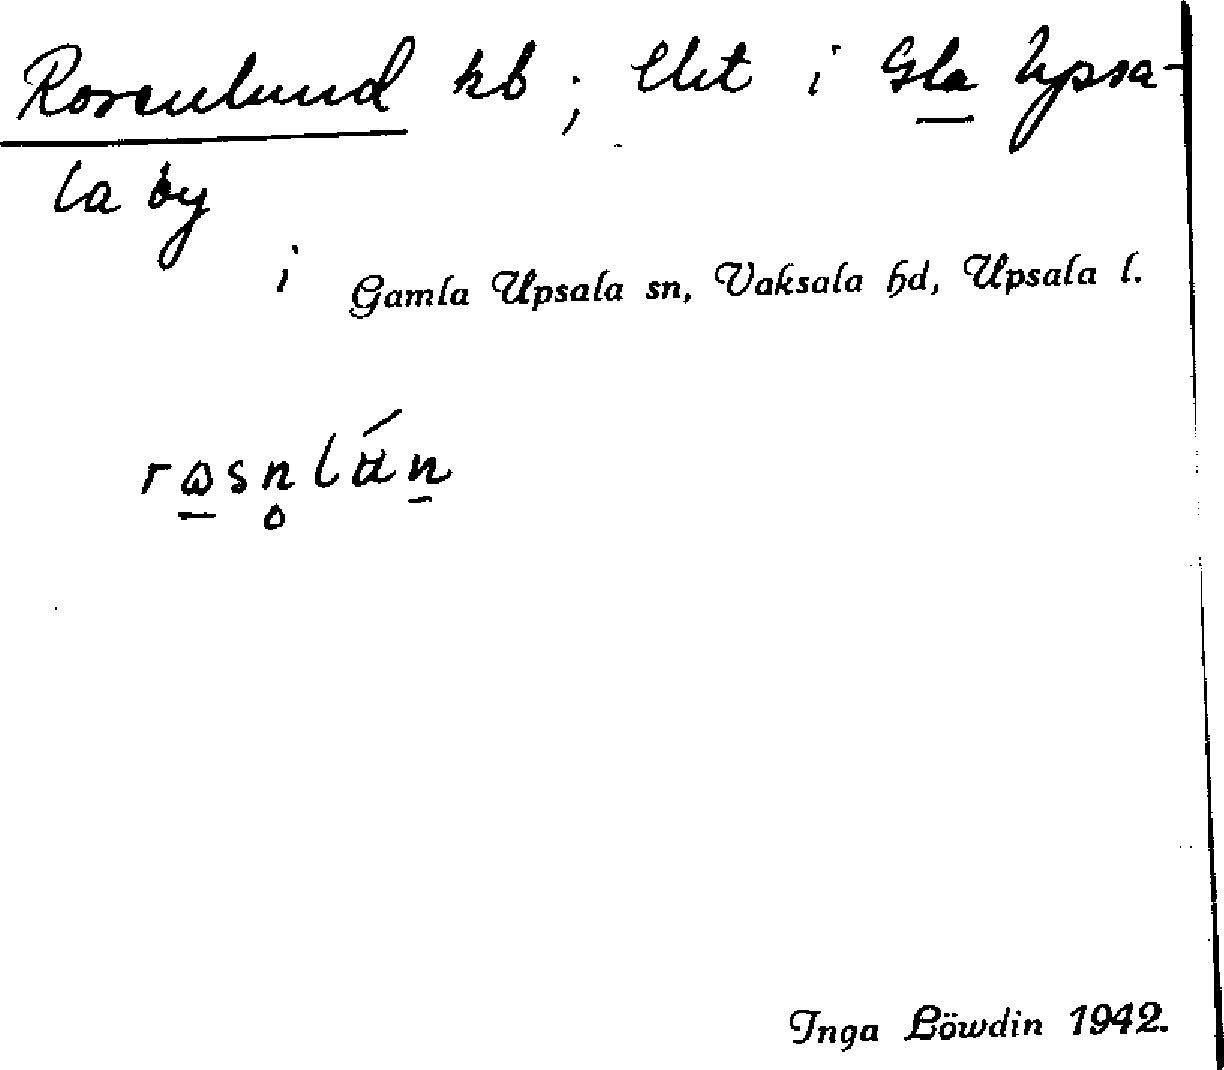 Rosenlund hb; lht i Gla Upsa-
la by
i Gamla Upsala sn, Vaksala hd, Upsala l.
Inga Löwdin 1942.